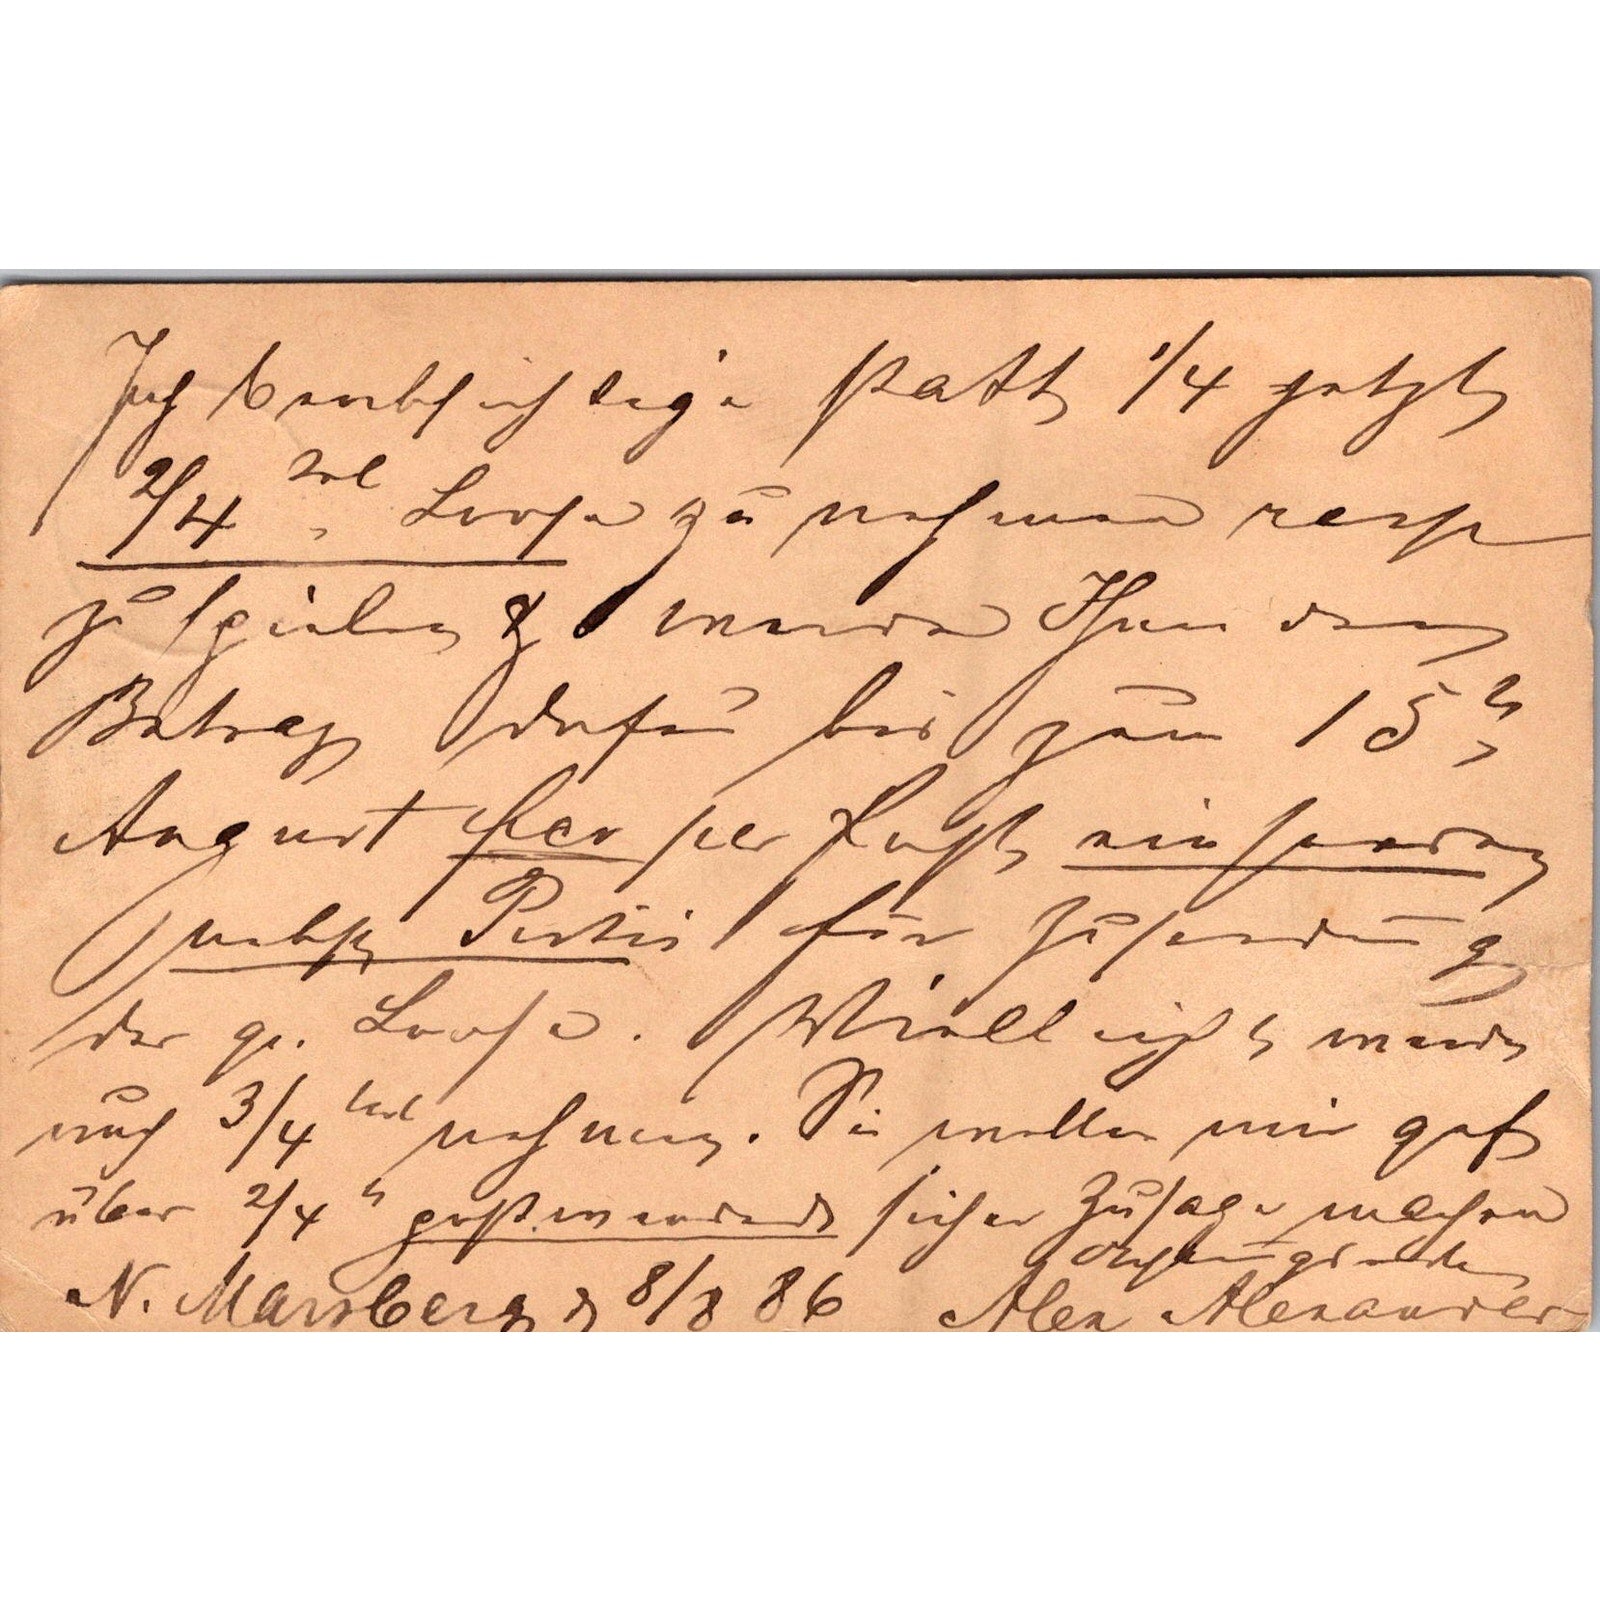 Ich beabsichtige statt 1/4 jetzt
2/4 tel Loose zu nehmen resp
zu spielen & werde Ihnen den
Betrag dafür bis zum 15t
August per Post einsenden
nebst Porto für Zusendung
der g. Loose. Vielleicht werde
auch 3/4 tel nehmen. Sie wollen mir gef
über 2/4 t postwendend sicher Zusage machen
N. Marsberg d 8/8 86 Alex Alexander